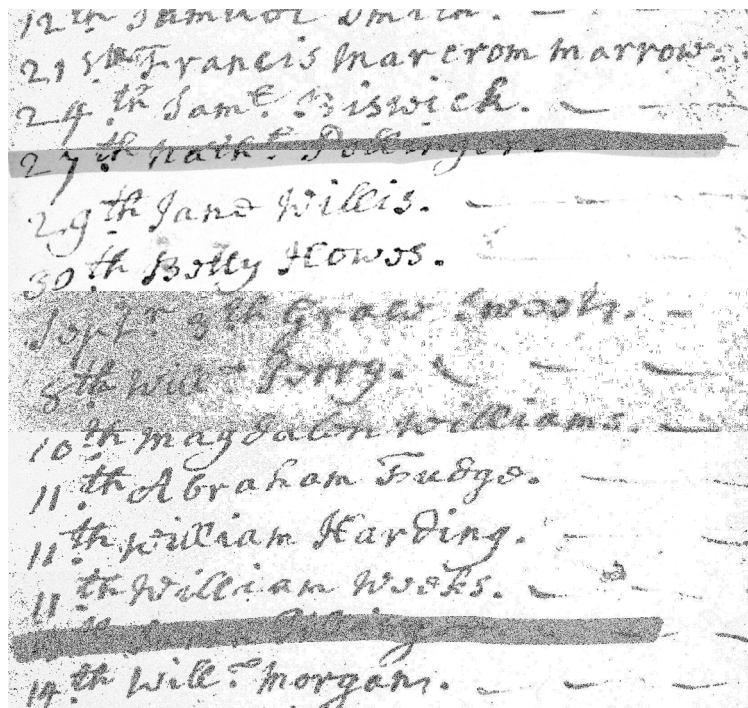 12th Samuel Smith.
21st Francis Marcrom Marrow.
24th Samᵉ Biswick.
27th Nathˡ
29th Jane Willis.
30th Betty Howes.
Septʳ 3th Grace Sweets.
8th Willᵐ Perry.
10th Magdalen Williams.
11th Abraham Fudge.
11th William Harding.
11th William Weeks.
14th Willᵐ Morgans.